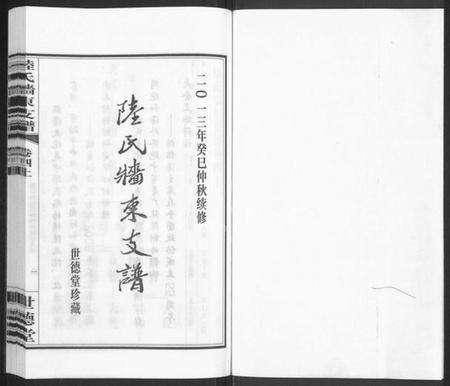 二〇一三年癸巳仲秋续修
陸氏牆東支譜
世德堂珍藏
陸氏牆東支譜
卷四上
世德堂